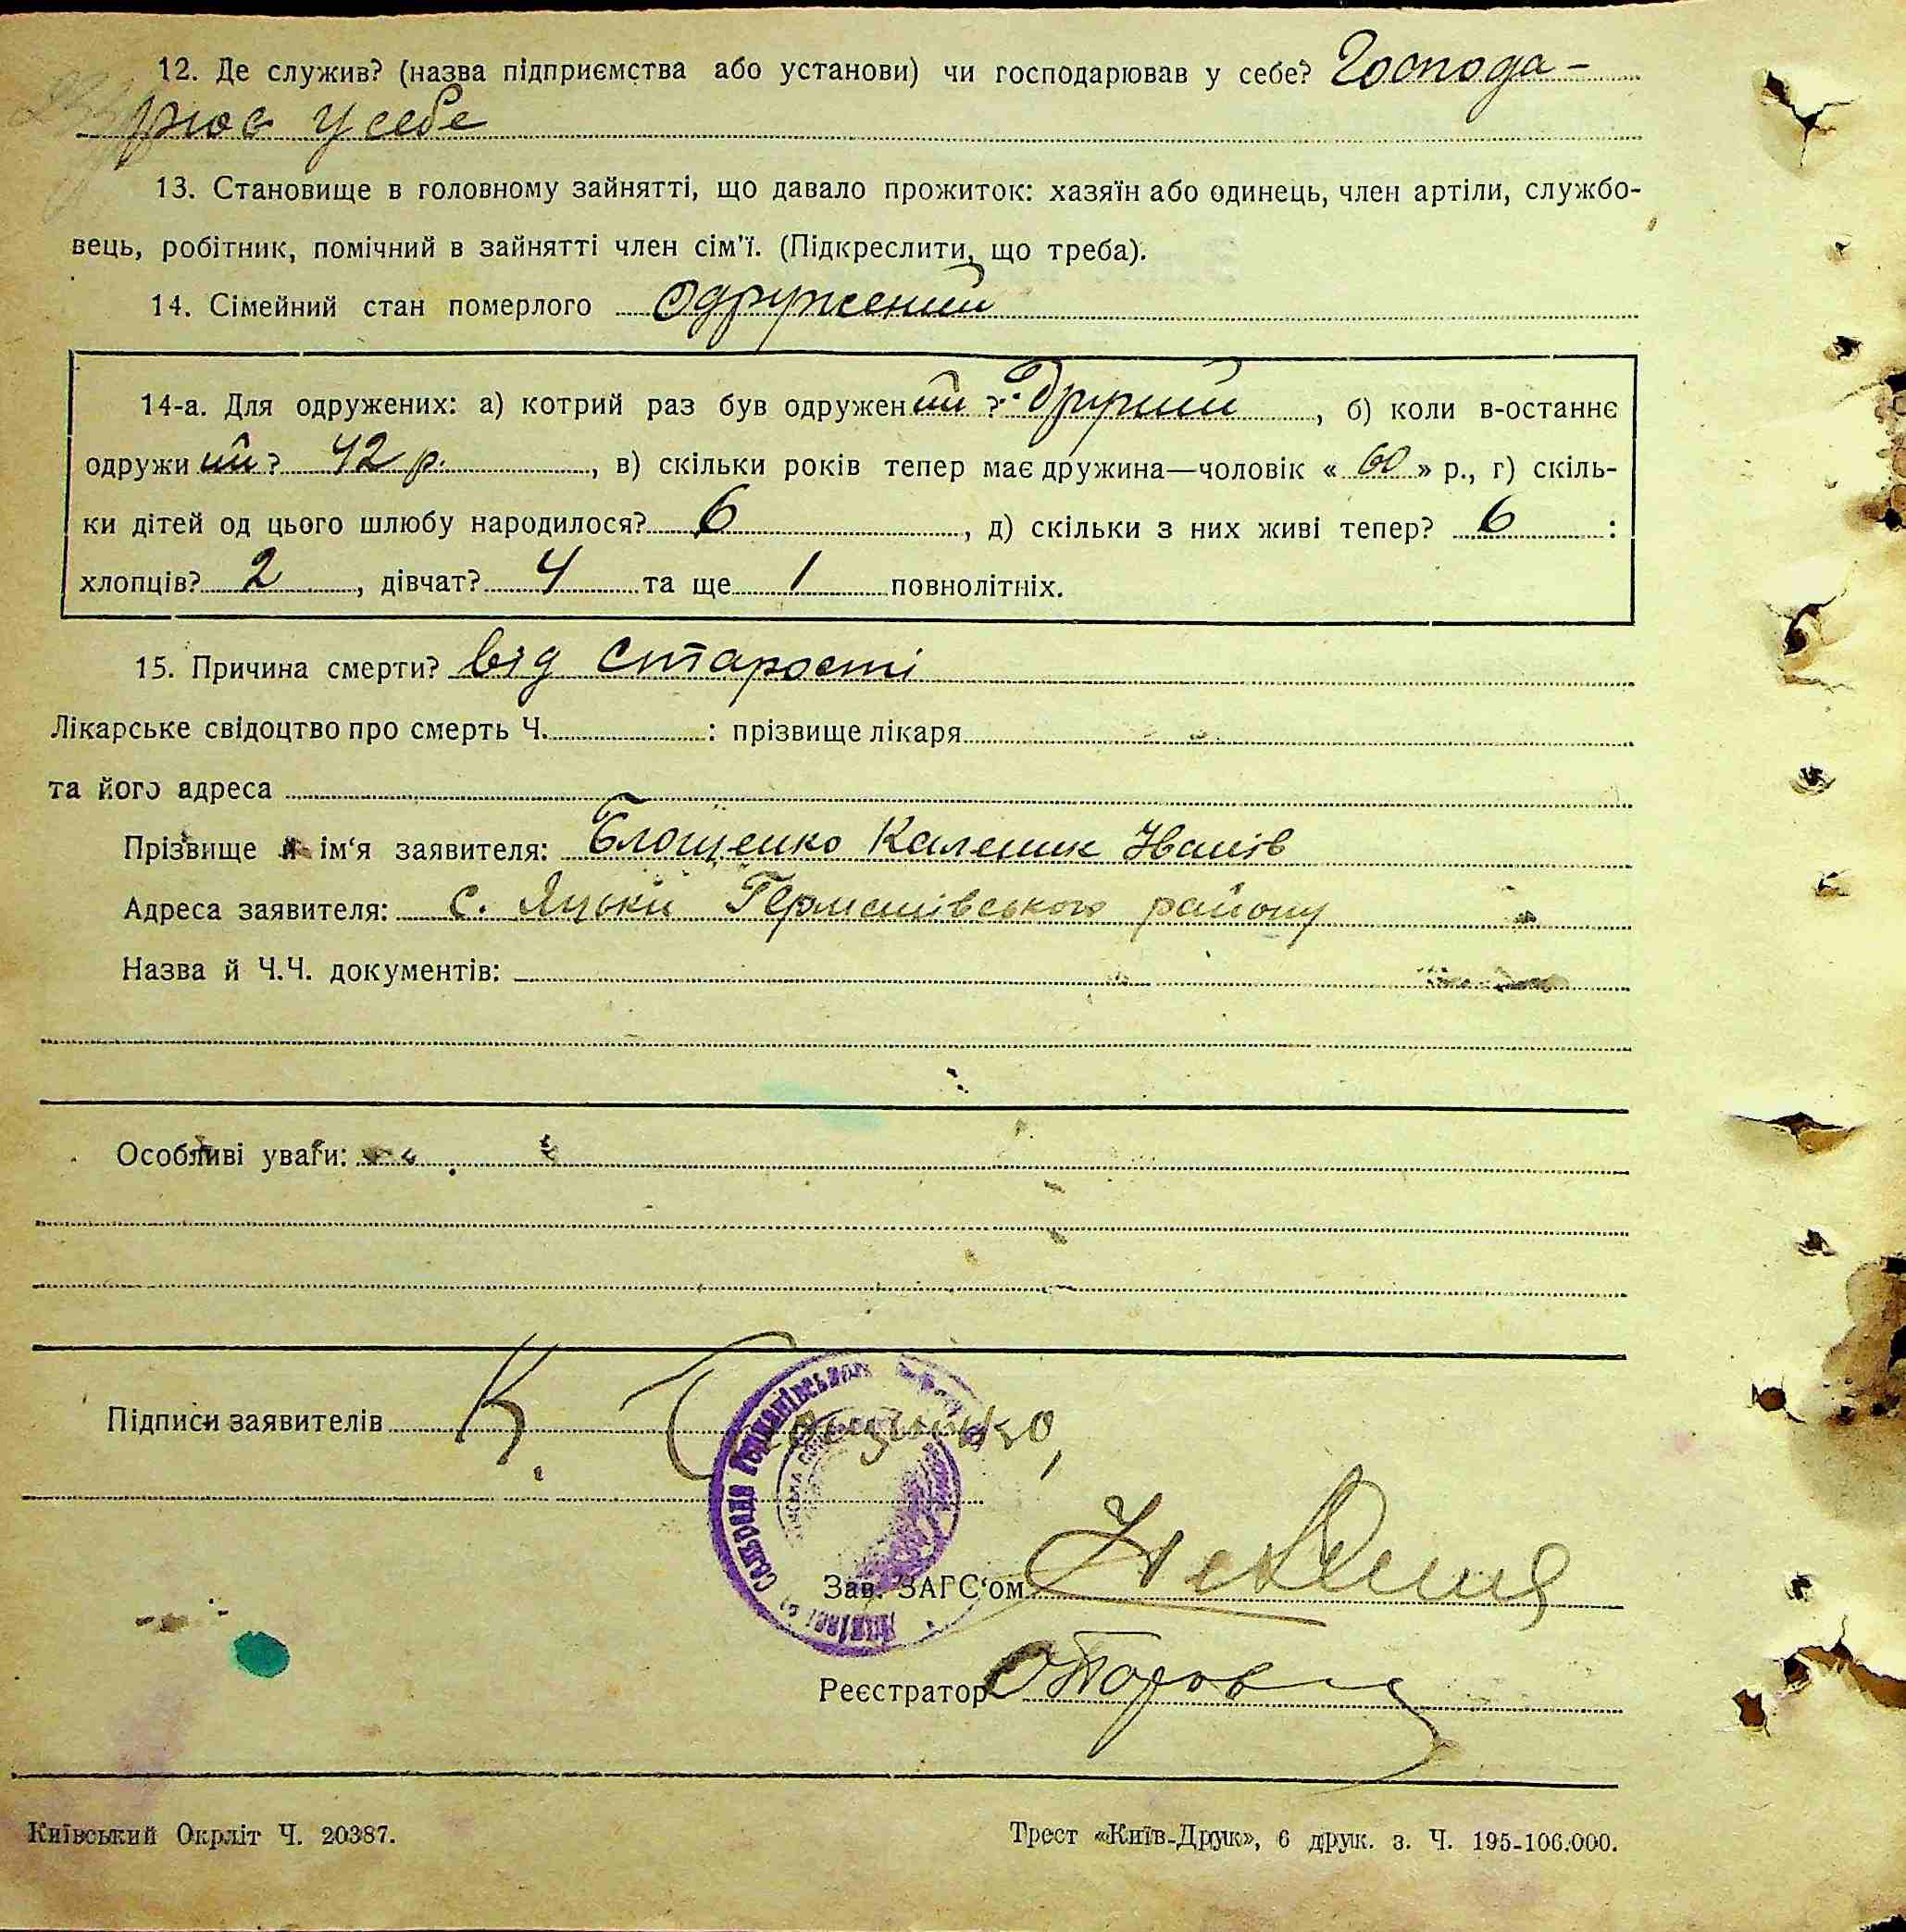 12. Де служив? (назва підприємства або установи) чи господарював у себе? Господа-
рює у себе
13. Становище в головному зайнятті, що давало прожиток: хазяїн або одинець, член артіли, службо-
вець, робітник, помічний в зайнятті член сім'ї. (Підкреслити, що треба).
14. Сімейний стан померлого одружений
14-а. Для одружених: а) котрий раз був одружений? другий, б) коли в-останнє
одружи ий? 42 р., в) скільки років тепер має дружина—чоловік «60» р., г) скіль-
ки дітей од цього шлюбу народилося? 6, д) скільки з них живі тепер? 6 :
хлопців? 2, дівчат? 4 та ще 1 повнолітніх.
15. Причина смерти? від старости
Лікарське свідоцтво про смерть Ч. : прізвище лікаря
та його адреса
Прізвище й ім'я заявителя: Блощенко Каленик Іванів
Адреса заявителя: с. Яцьки Германівського району
Назва й Ч.Ч. документів:
Особливі уваги:
Підписи заявителів К. Блощенко
Сільрада Германівськ
Зав. ЗАГС'ом
Реєстратор
Київський Окрліт Ч. 20387.
Трест «Київ-Друк», 6 друк. з. Ч. 195-106.000.